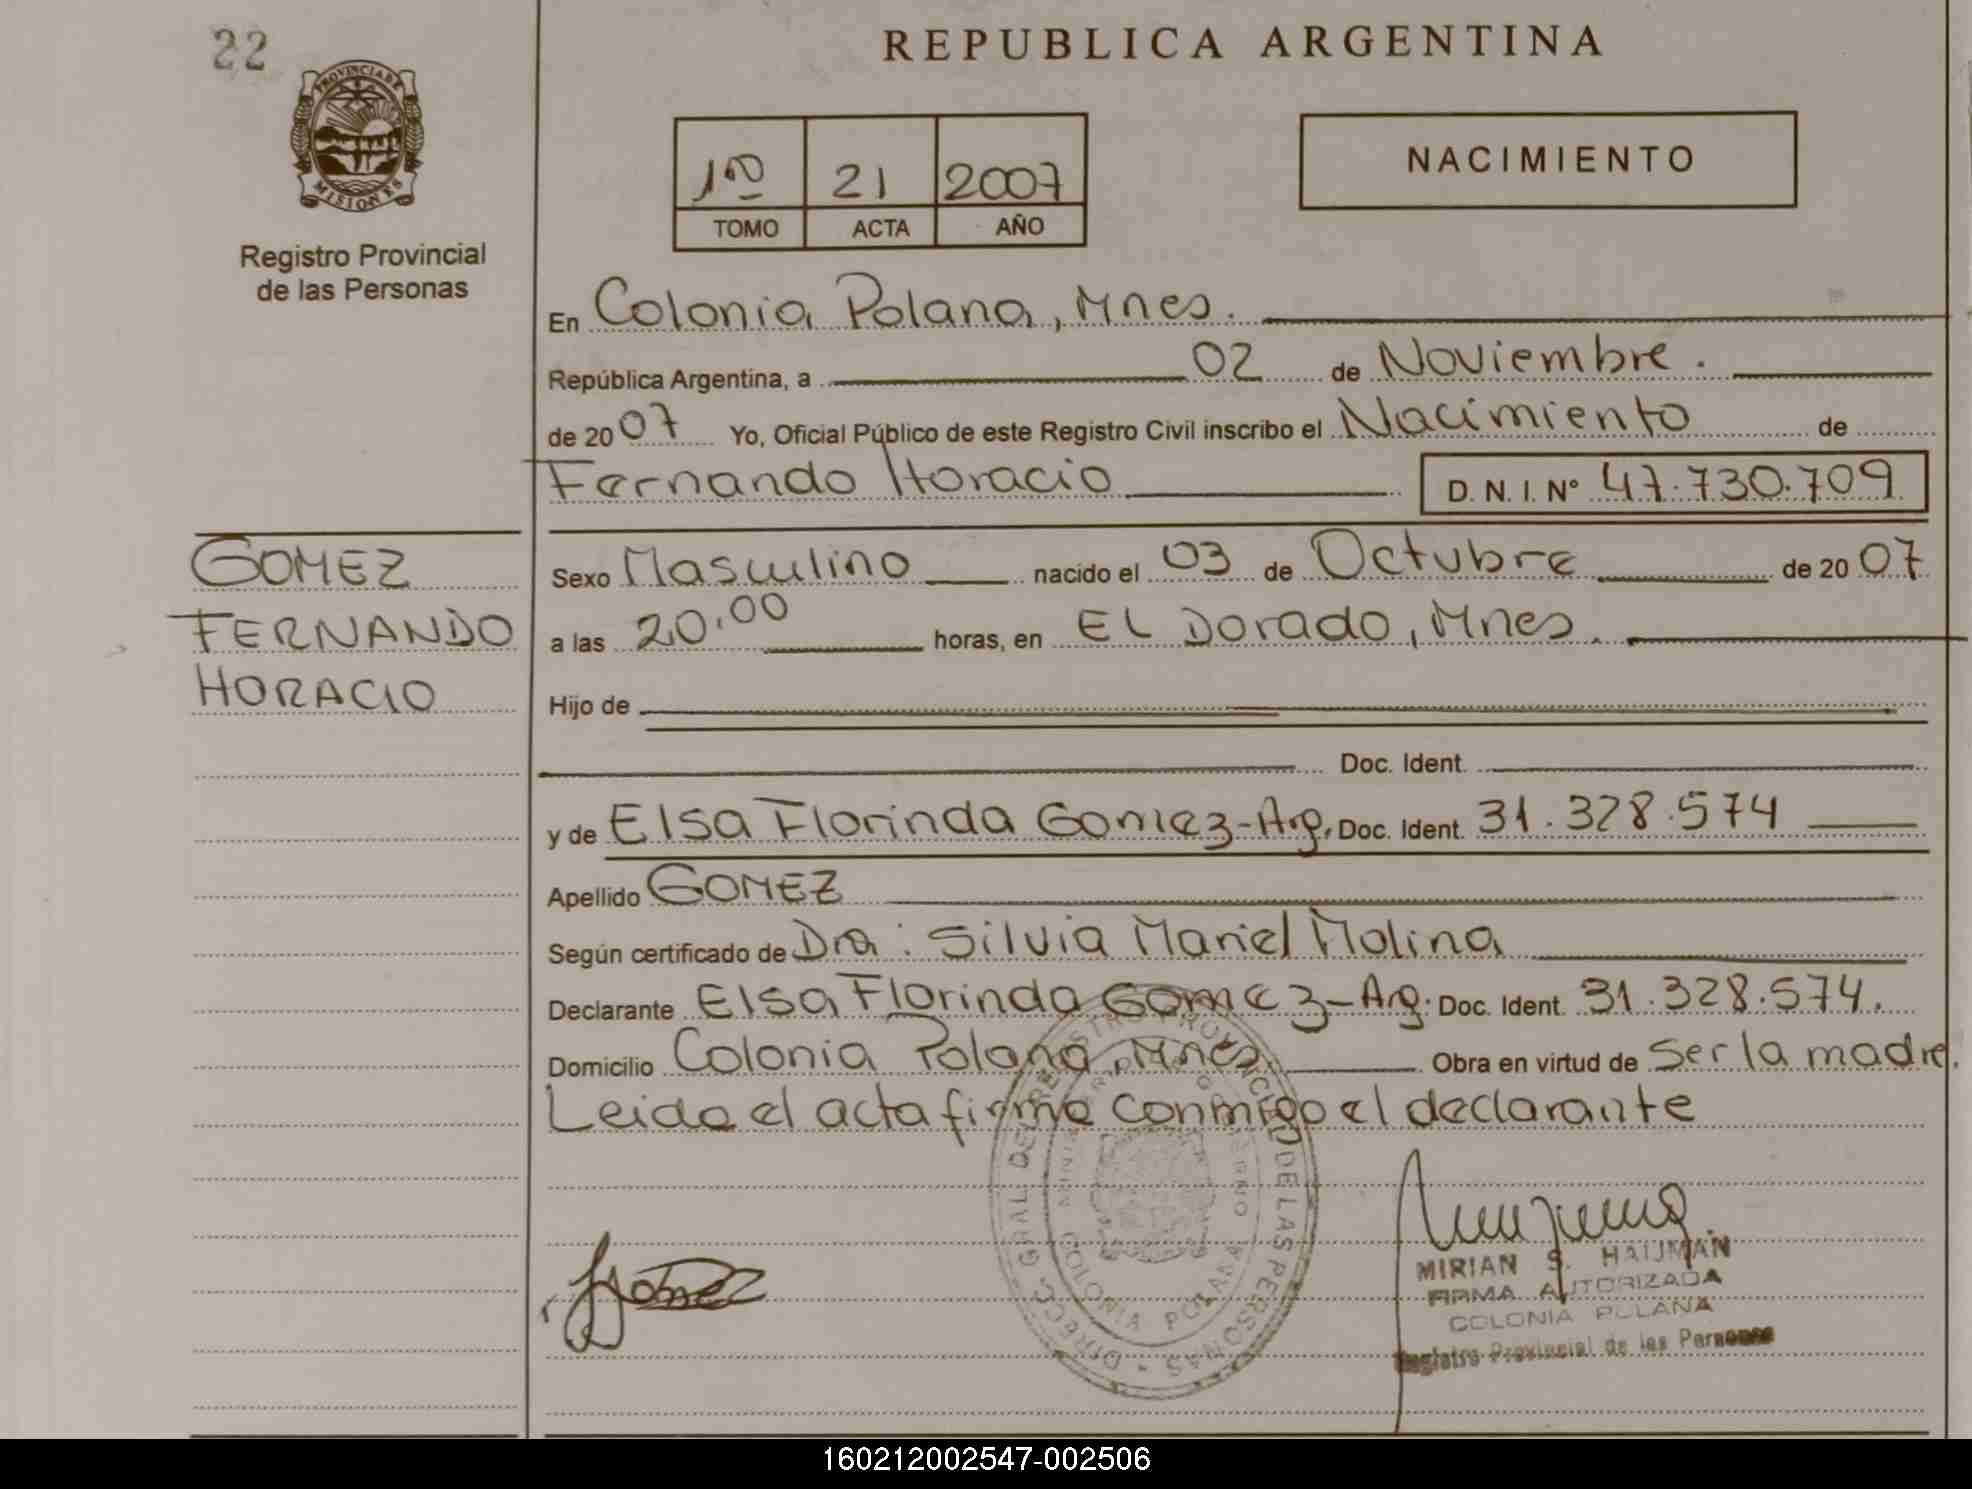 22
REPUBLICA ARGENTINA
PROVINCIA DE
MISIONES
Registro Provincial
de las Personas
1ro 21 2007
TOMO ACTA AÑO
NACIMIENTO
En Colonia Polana, Mnes.
República Argentina, a 02 de Noviembre.
de 2007 Yo, Oficial Público de este Registro Civil inscribo el Nacimiento de
Fernando Horacio D. N. I. Nº 47.730.709
GOMEZ
FERNANDO
HORACIO
Sexo Masculino nacido el 03 de Octubre de 2007
a las 20.00 horas, en EL Dorado, Mnes.
Hijo de
Doc. Ident.
y de Elsa Florinda Gomez-Arg. Doc. Ident. 31.328.574
Apellido GOMEZ
Según certificado de Dra: Silvia Mariel Molina
Declarante Elsa Florinda Gomez-Arg. Doc. Ident. 31.328.574.
Domicilio Colonia Polana, Mnes. Obra en virtud de Ser la madre.
Leida el acta firma conmigo el declarante
DIRECC. GRAL. DEL REGISTRO PROVINCIAL DE LAS PERSONAS
COLONIA POLANA
Gomez
MIRIAN S. HAIJMAN
FIRMA AUTORIZADA
COLONIA POLANA
Registro Provincial de las Personas
160212002547-002506